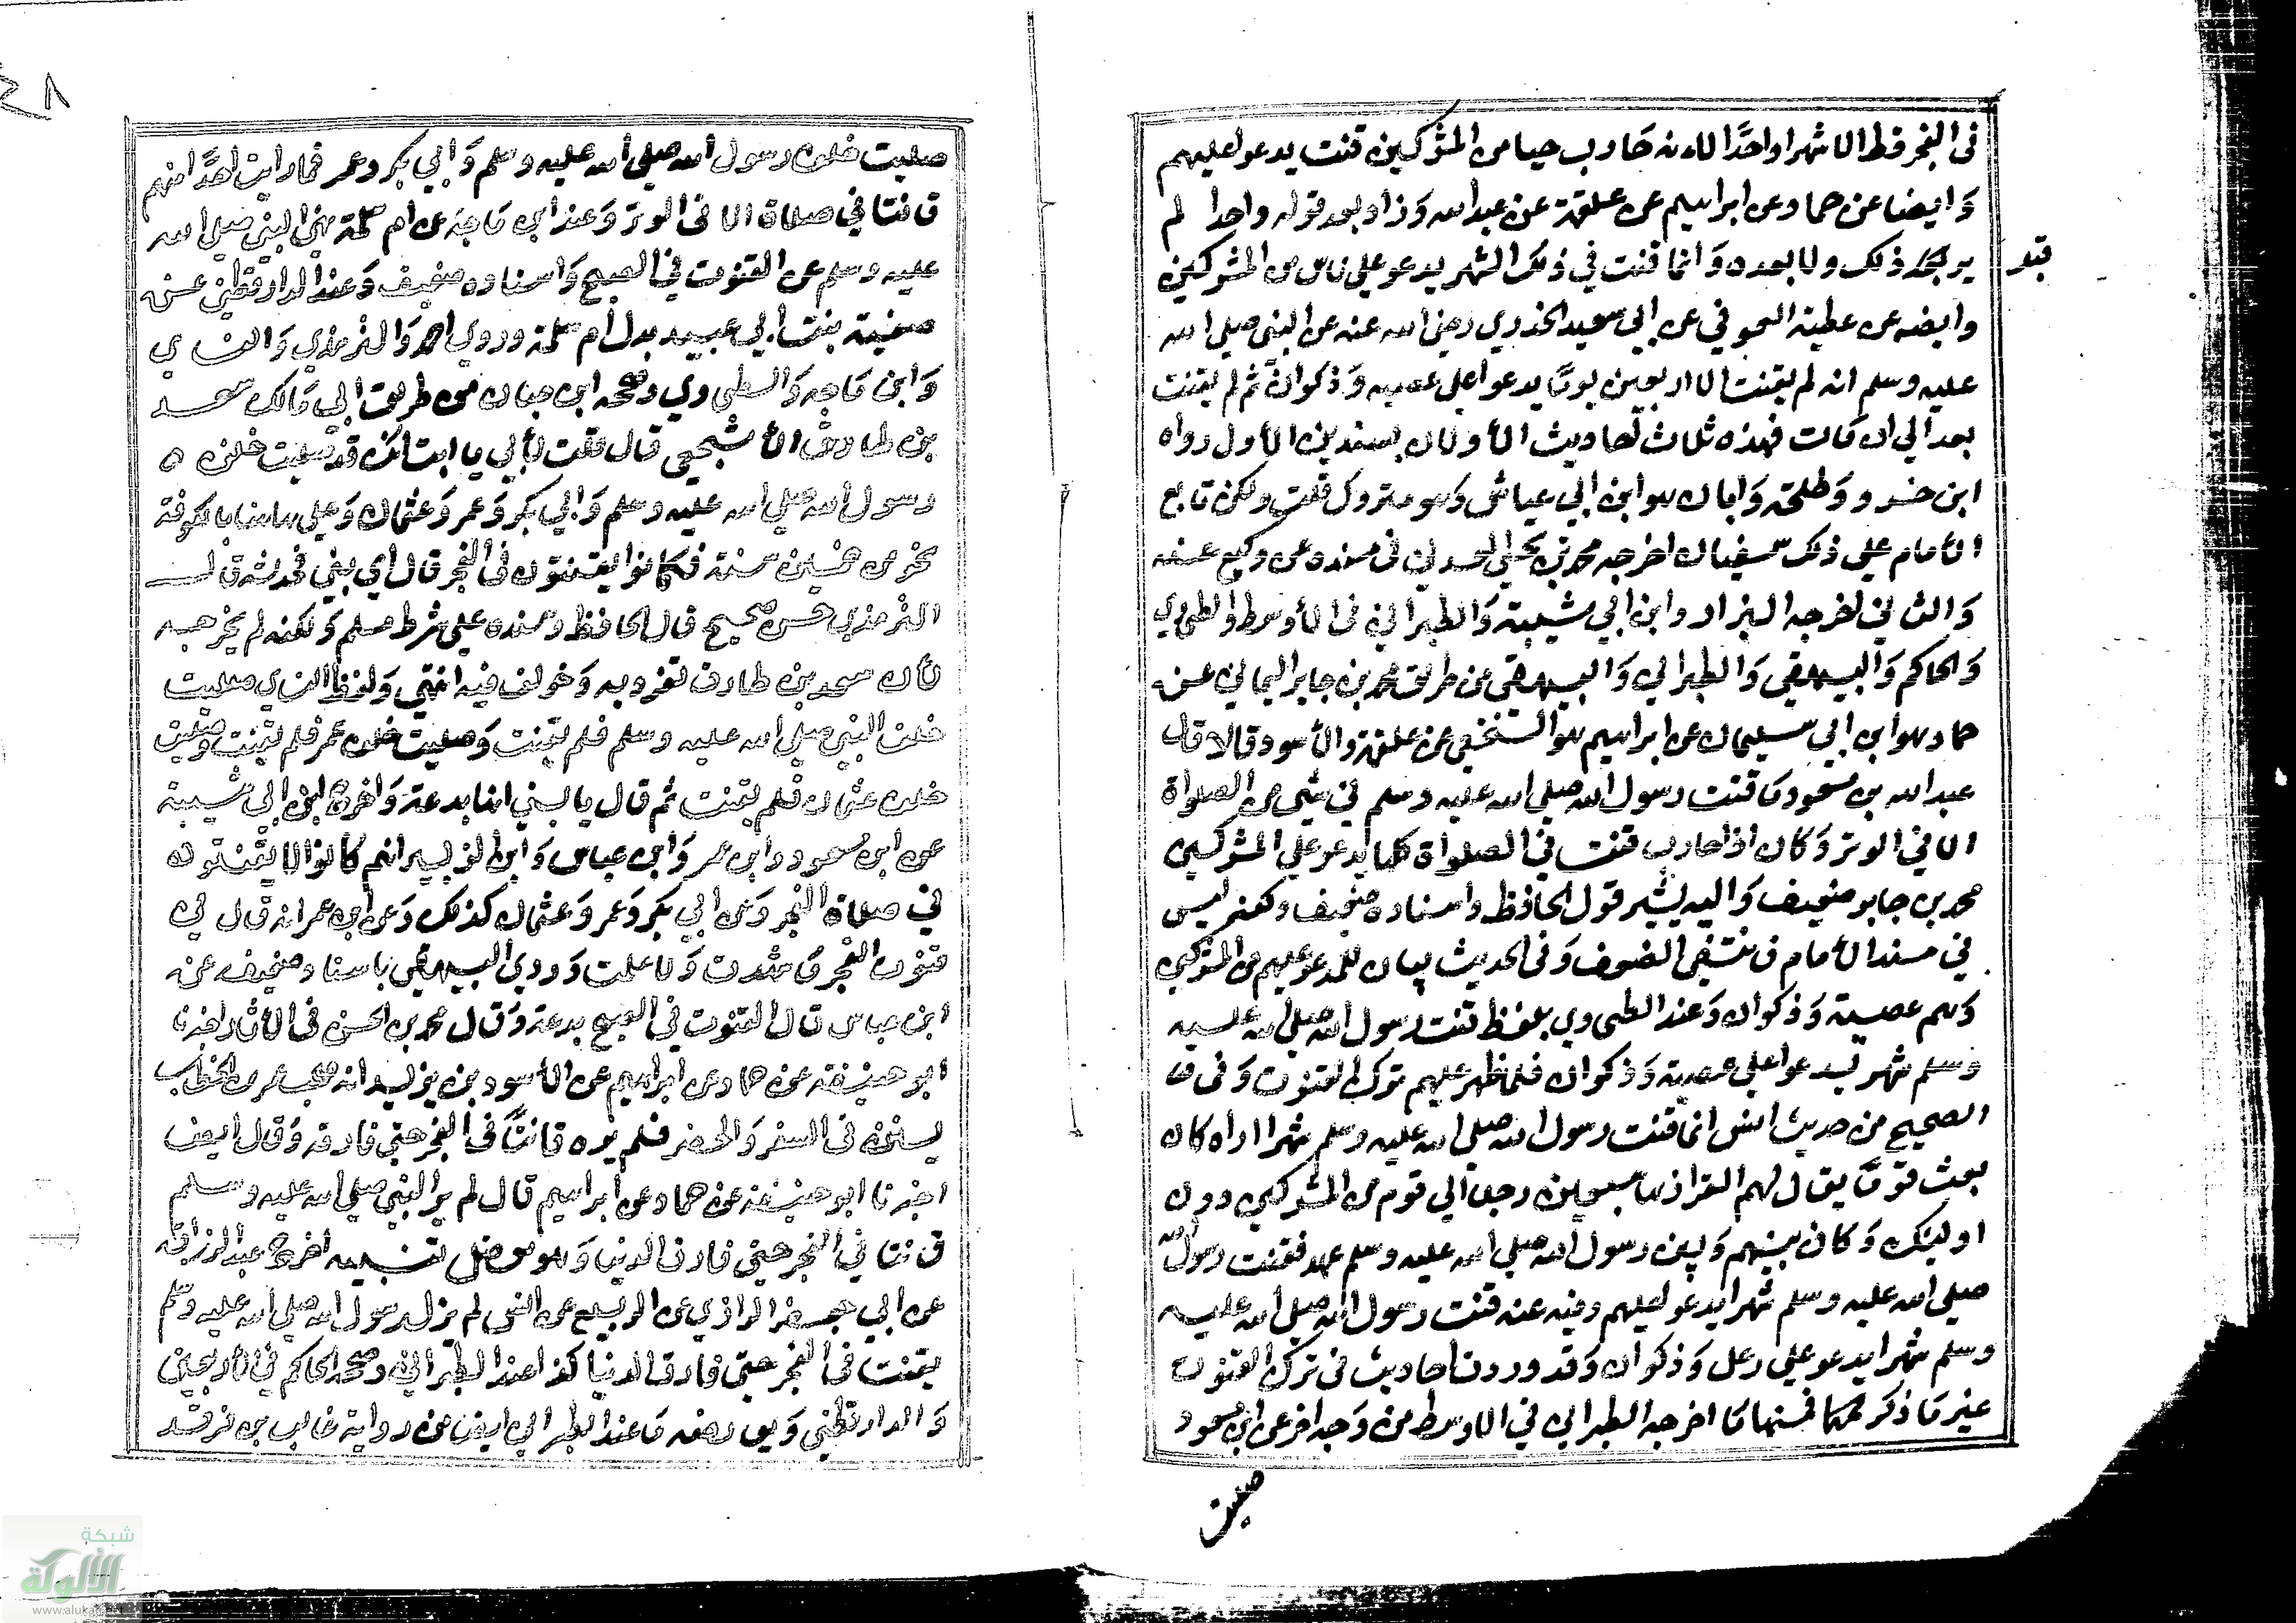 في الفجر قط الا شهرا واحدًا لاءنه حارب حيا من المشركين قنت يدعوا عليهم
وَايضا عن حماد عن ابراهيم عن علقمة عن عبد الله وَزاد بعد قوله واحدا لم
ير قبل ذلك ولا بعده وَانما قنت في ذلك الشهر يدعو علي ناس من المشركين
قبل
وايضه عن عطية العوفي عن ابي سعيد الخدري رضي الله عنه عن النبي صلي الله
عليه وسلم انه لم يقنت الا اربعين يومًا يدعوا علي عصيه وَذكوان ثم لم يقنت
بعد الي ان مَات فهذه ثلاث احاديث الأولان بسندين الأول رواه
ابن خسرو وَطلحة وَابان هو ابن ابي عياش وَهو متروك قلت ولكن تابع
الأمام علي ذلك سفيان اخرجه محمد بن يحيي العدني في مسنده عن وكيع عنه
وَالثاني اخرجه البزار وابن ابي شيبة وَالطبراني في الأوسط والطحاوي
وَالحاكم وَالبيهقي وَالطبراني وَالبيهقي من طريق محمد بن جابر اليماني عن
حماد هو ابن ابي سليمان عن ابراهيم هو النخعي عن علقمة والأسود قالا قال
عبد الله بن مسعود مَا قنت رسول الله صلي الله عليه وسلم في شي من الصلواة
الا في الوتر وَكان اذا حارب قنت في الصلواة كلها يدعو علي المشركين
محمد بن جابر ضعيف وَاليه يشير قول الحافظ واسناده ضعيف ولكنه ليس
في مسند الأمام فانتفي الضعف وَفي الحديث بيان للمدعو عليهم من المشركين
وَهم عصية وَذكوان وَعند الطحاوي بلفظ قنت رسول الله صلي الله عليه
وسلم شهر يدعوا علي عصية وَذكوان فلما ظهر عليهم ترك القنوت وَفي
الصحيح من حديث انس انما قنت رسول الله صلي الله عليه وسلم شهرا اراه كان
بعث قومًا يقال لهم القراء زهاء سبعين رجلا الي قوم من المشركين دون
اوليك وَكان بينهم وَبين رسول الله صلي الله عليه وسلم عهد فقنت رسول الله
صلي الله عليه وسلم شهرا يدعو عليهم وفيه عنه قنت رسول الله صلي الله عليه
وسلم شهرا يدعو علي رعل وَذكوان وَقد وردت احاديث في ترك القنوت
غير مَا ذكر فمنها مَا اخرجه الطبراني في الاوسط من وَجه اخر عن ابن مسعود
صليت
صليت خلف رسول الله صلي الله عليه وسلم وَابي بكر وعمر فما رايت احدًا منهم
قانتا في صلاة الا في الوتر وَعند ابن مَاجه عن ام سلمة نهي النبي صلي الله
عليه وسلم عن القنوت في الصبح وَاسناده ضعيف وَعند الدارقطني عن
صفية بنت ابي عبيد بدل ام سلمة وروي احمد وَالترمذي وَالنساي
وَابن مَاجه وَالطحاوي وصححه ابن حبان من طريق ابي مَالك سعد
بن طارق الأشجعي قال قلت لأبي يا ابت انك قد صليت خلف
رسول الله صلي الله عليه وسلم وَابي بكر وَعمر وَعثمان وَعلي هاهنا بالكوفة
نحو من خمسين سنة فكانوا يقنتون في الفجر قال اي بني محدث قال
الترمذي حسن صحيح قال الحافظ وسنده علي شرط مسلم وَلكنه لم يخرجه
لأن سعد بن طارق تفرد به وَخولف فيه انتهي وَلفظ النساي صليت
خلف النبي صلي الله عليه وسلم فلم يقنت وَصليت خلف عمر فلم يقنت وصليت
خلف عثمان فلم يقنت ثم قال يا بني انها بدعة وَاخرج ابن ابي شيبة
عن ابن مسعود وابن عمر وَابن عباس وَابن الزبير انهم كانوا لا يقنتون
في صلاة الفجر وَعن ابي بكر وَعمر وَعثمان كذلك وَعن ابن عمر انه قال في
قنوت الفجر مَا شهدت وَلا علمت وَروي البيهقي باسناد ضعيف عن
ابن عباس قال القنوت في الصبح بدعة وَقال محمد بن الحسن في الأثار اخبرنا
ابو حنيفة عن حماد عن ابراهيم عن الأسود بن يزيد انه صحب عمر بن الخطاب
سنتين في السفر وَالحضر فلم يره قانتًا في الفجر حتي فارقه وَقال ايضا
اخبرنا ابو حنيفة عن حماد عن ابراهيم قال لم ير النبي صلي الله عليه وسلم
قانتا في الفجر حتي فارق الدنيا وَهو معضل تنبيه اخرج عبد الرزاق
عن ابي جعفر الرازي عن الربيع عن انس لم يزل رسول الله صلي الله عليه وسلم
يقنت في الفجر حتي فارق الدنيا كذا عند الطبراني وصححه الحاكم في الأربعين
وَالدارقطني وَيعارضه مَا عند الطبراني ايضا من رواية غالب بن فرقد
شبكة
الألوكة